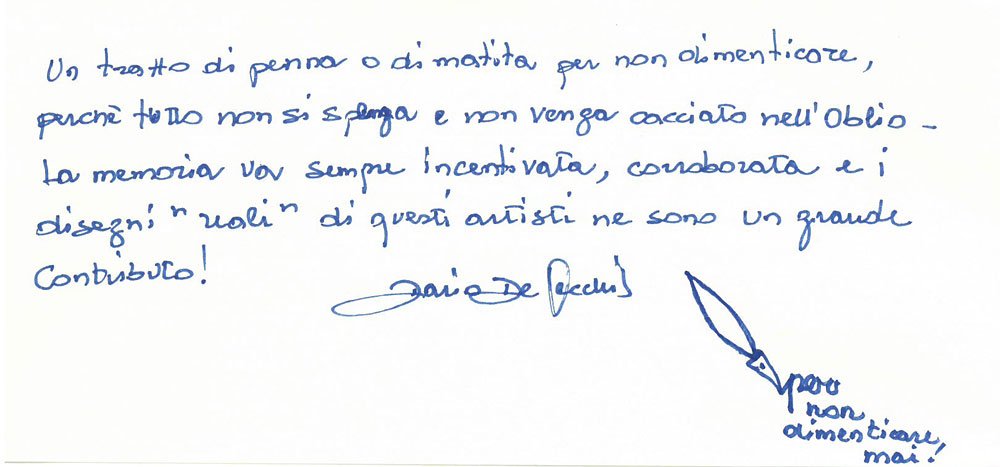 Un tratto di penna o di matita per non dimenticare,
perchè tutto non si spenga e non venga cacciato nell'Oblio -
La memoria va sempre incentivata, corroborata e i
disegni "reali" di questi artisti ne sono un grande
Contributo!
Dario De
per
non
dimenticare,
mai!